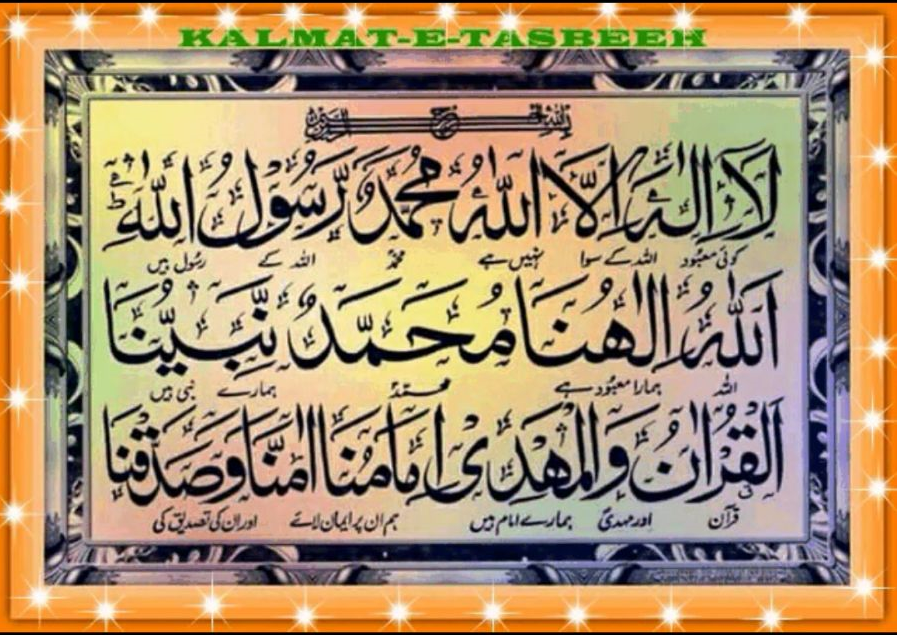 KALMAT-E-TASBEEH
لَا اِلٰهَ اِلَّا اللّٰهُ مُحَمَّدٌ رَّسُوْلُ اللّٰهِ
کوئی معبود اللہ کے سوا نہیں ہے محمدؐ اللہ کے رسول ہیں
اَللّٰهُ اِلٰهُنَا مُحَمَّدٌ نَّبِيُّنَا
اللہ ہمارا معبود ہے محمدؐ ہمارے نبی ہیں
اَلْقُرْاٰنُ وَالْمَهْدِی اِمَامُنَا اٰمَنَّا وَصَدَّقْنَا
قرآن اور مہدیؑ ہمارے امام ہیں ہم ان پر ایمان لائے اور ان کی تصدیق کی